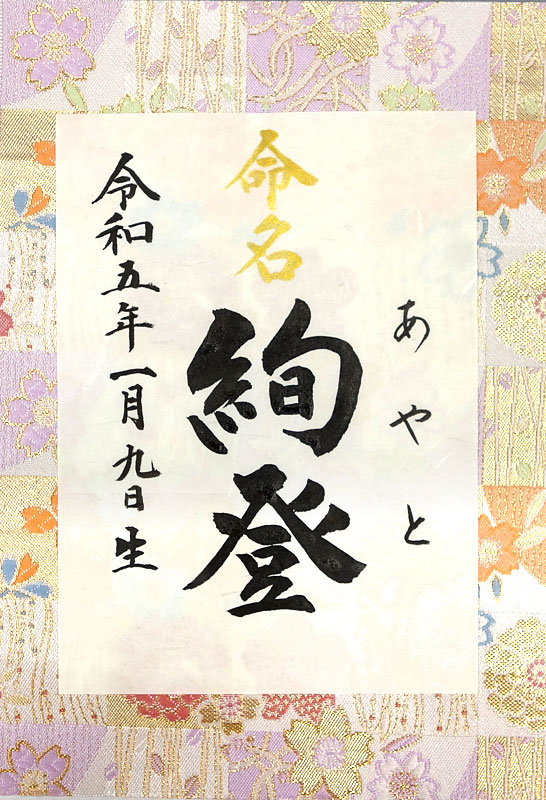 あやと
命名
絢登
令和五年一月九日生